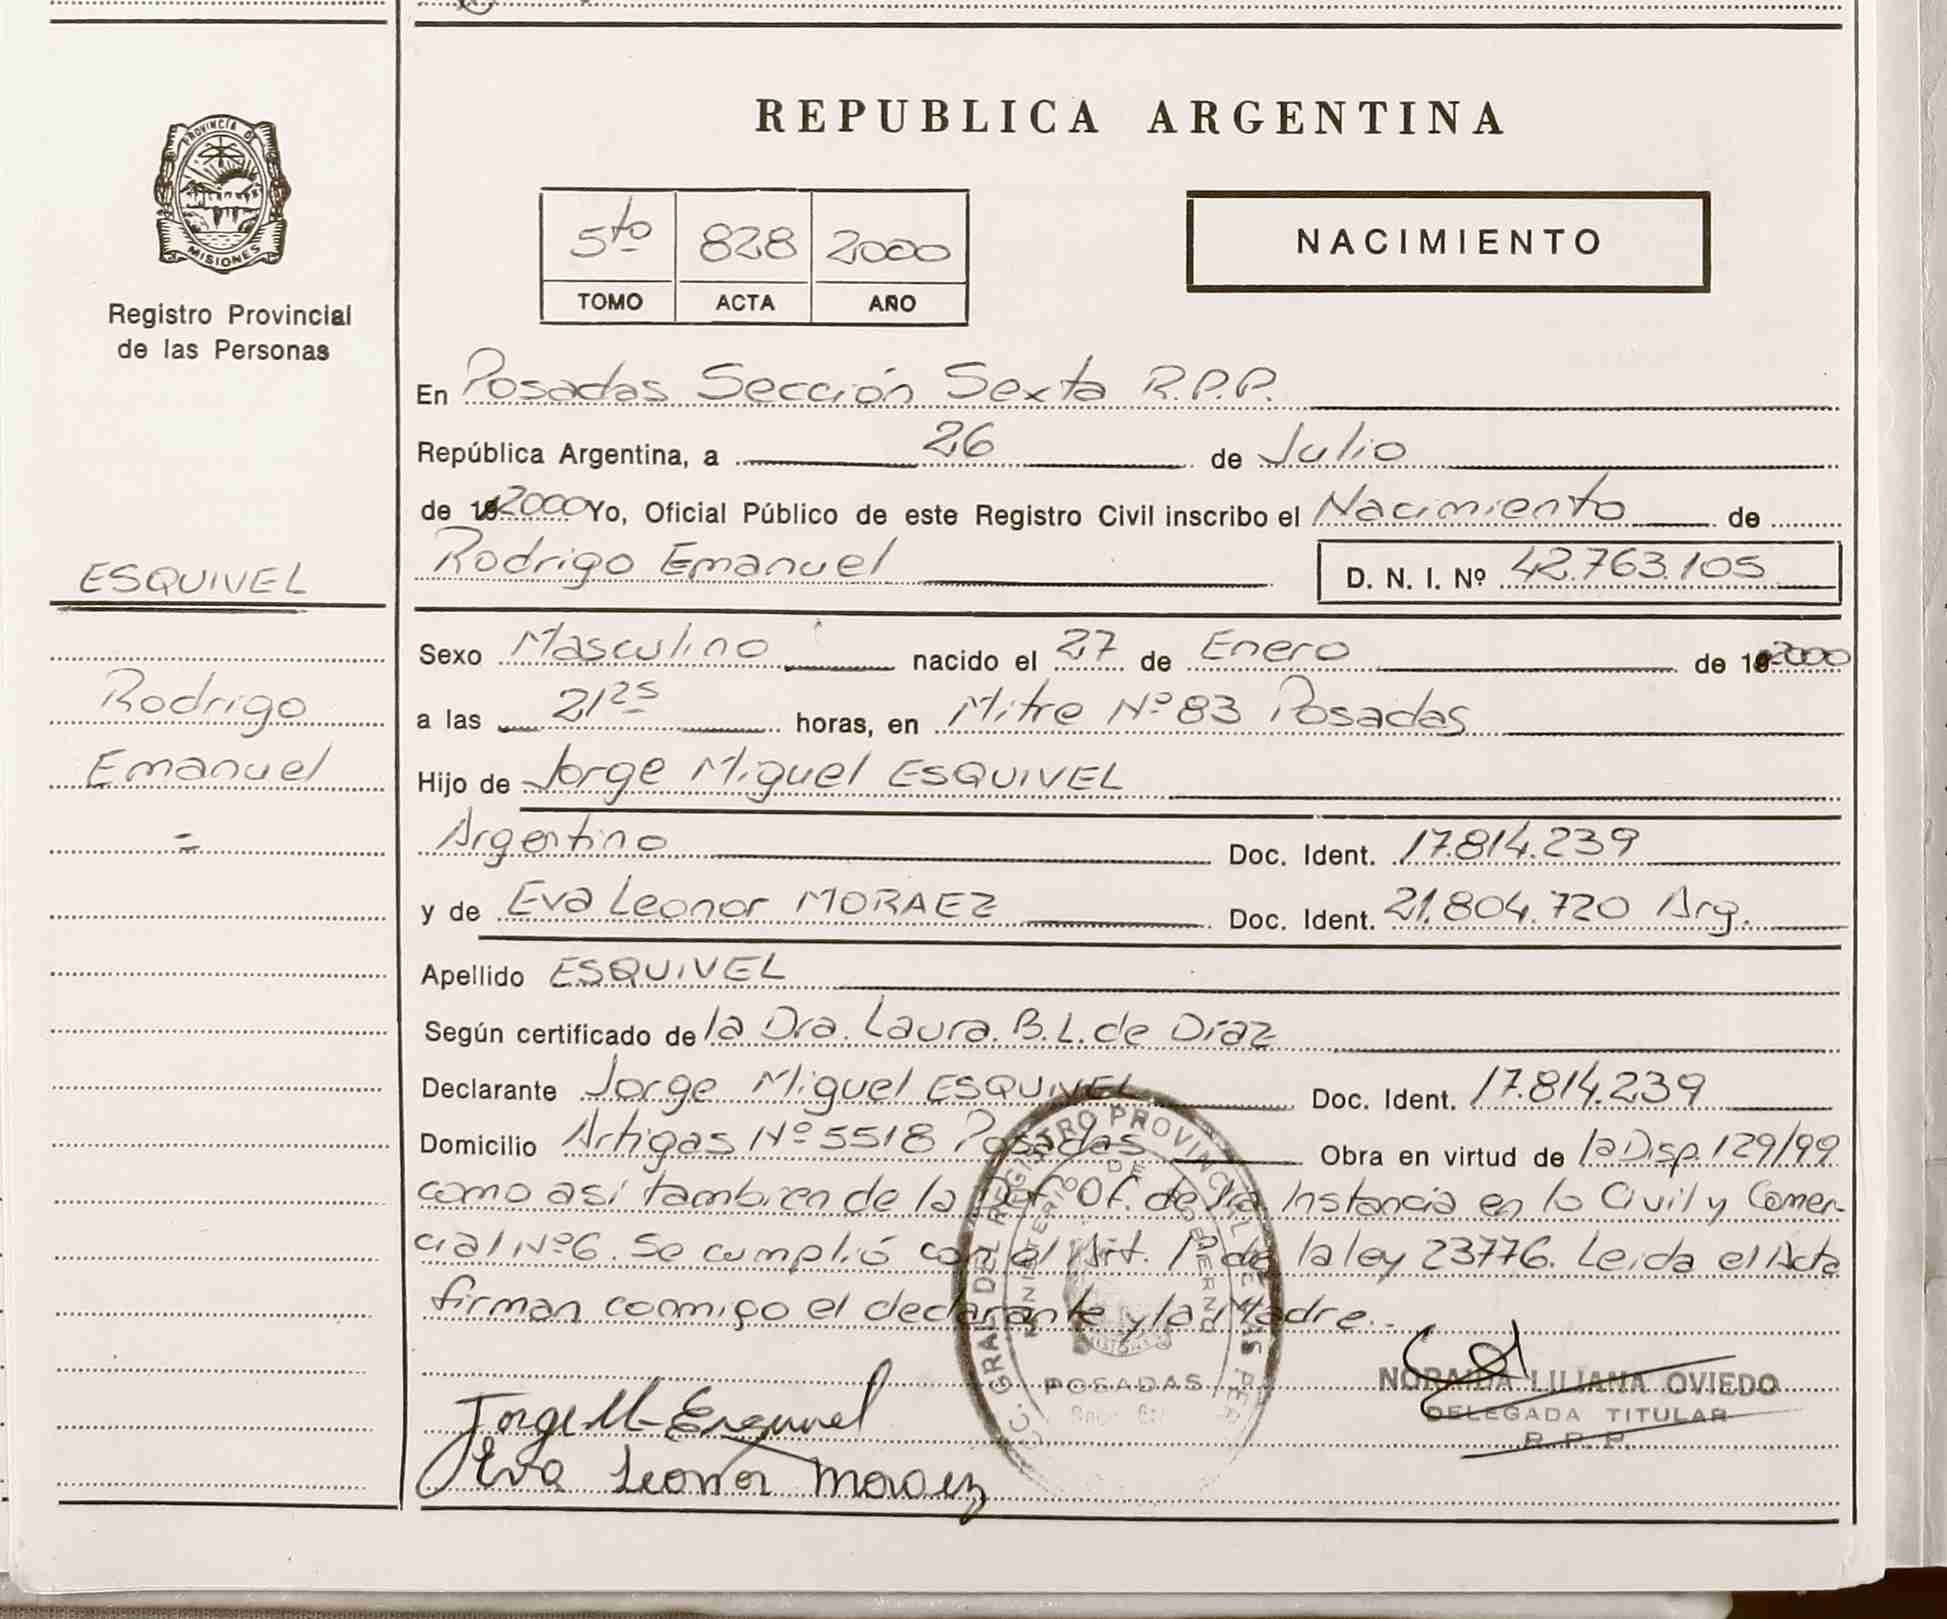 REPUBLICA ARGENTINA
PROVINCIA DE
MISIONES
Registro Provincial
de las Personas
5to 828 2000
TOMO ACTA AÑO
NACIMIENTO
En Posadas Sección Sexta R.P.P.
República Argentina, a 26 de Julio
de 2000 Yo, Oficial Público de este Registro Civil inscribo el Nacimiento de
Rodrigo Emanuel D. N. I. Nº 42.763.105
ESQUIVEL
Rodrigo
Emanuel
=
Sexo Masculino nacido el 27 de Enero de 2000
a las 21 25 horas, en Mitre Nº 83 Posadas
Hijo de Jorge Miguel ESQUIVEL
Argentino Doc. Ident. 17.814.239
y de Eva Leonor MORAEZ Doc. Ident. 21.804.720 Arg.
Apellido ESQUIVEL
Según certificado de la Dra. Laura. B.L. de Díaz
Declarante Jorge Miguel ESQUIVEL Doc. Ident. 17.814.239
Domicilio Artigas Nº 5518 Posadas Obra en virtud de la Disp. 129/99
como así tambien de la Of. de Instancia en lo Civil y Comer-
cial Nº6. Se cumplió con el Art. 1º de la ley 23776. Leida el Acta
firman conmigo el declarante y la Madre.-
REGISTRO PROVINCIAL DE LAS PER
MINISTERIO DE GOBIERNO
MISIONES
POSADAS
NORAIDA LILIANA OVIEDO
DELEGADA TITULAR
R. P. P.
Jorge M. Esquivel
Eva Leonor Moraez